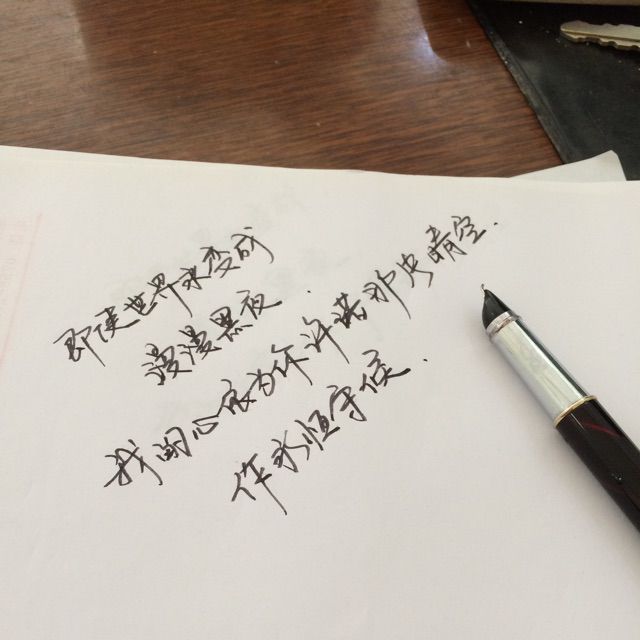 即使世界变成
漫漫黑夜.
我的心为你许诺那片晴空.
作永恒守候.